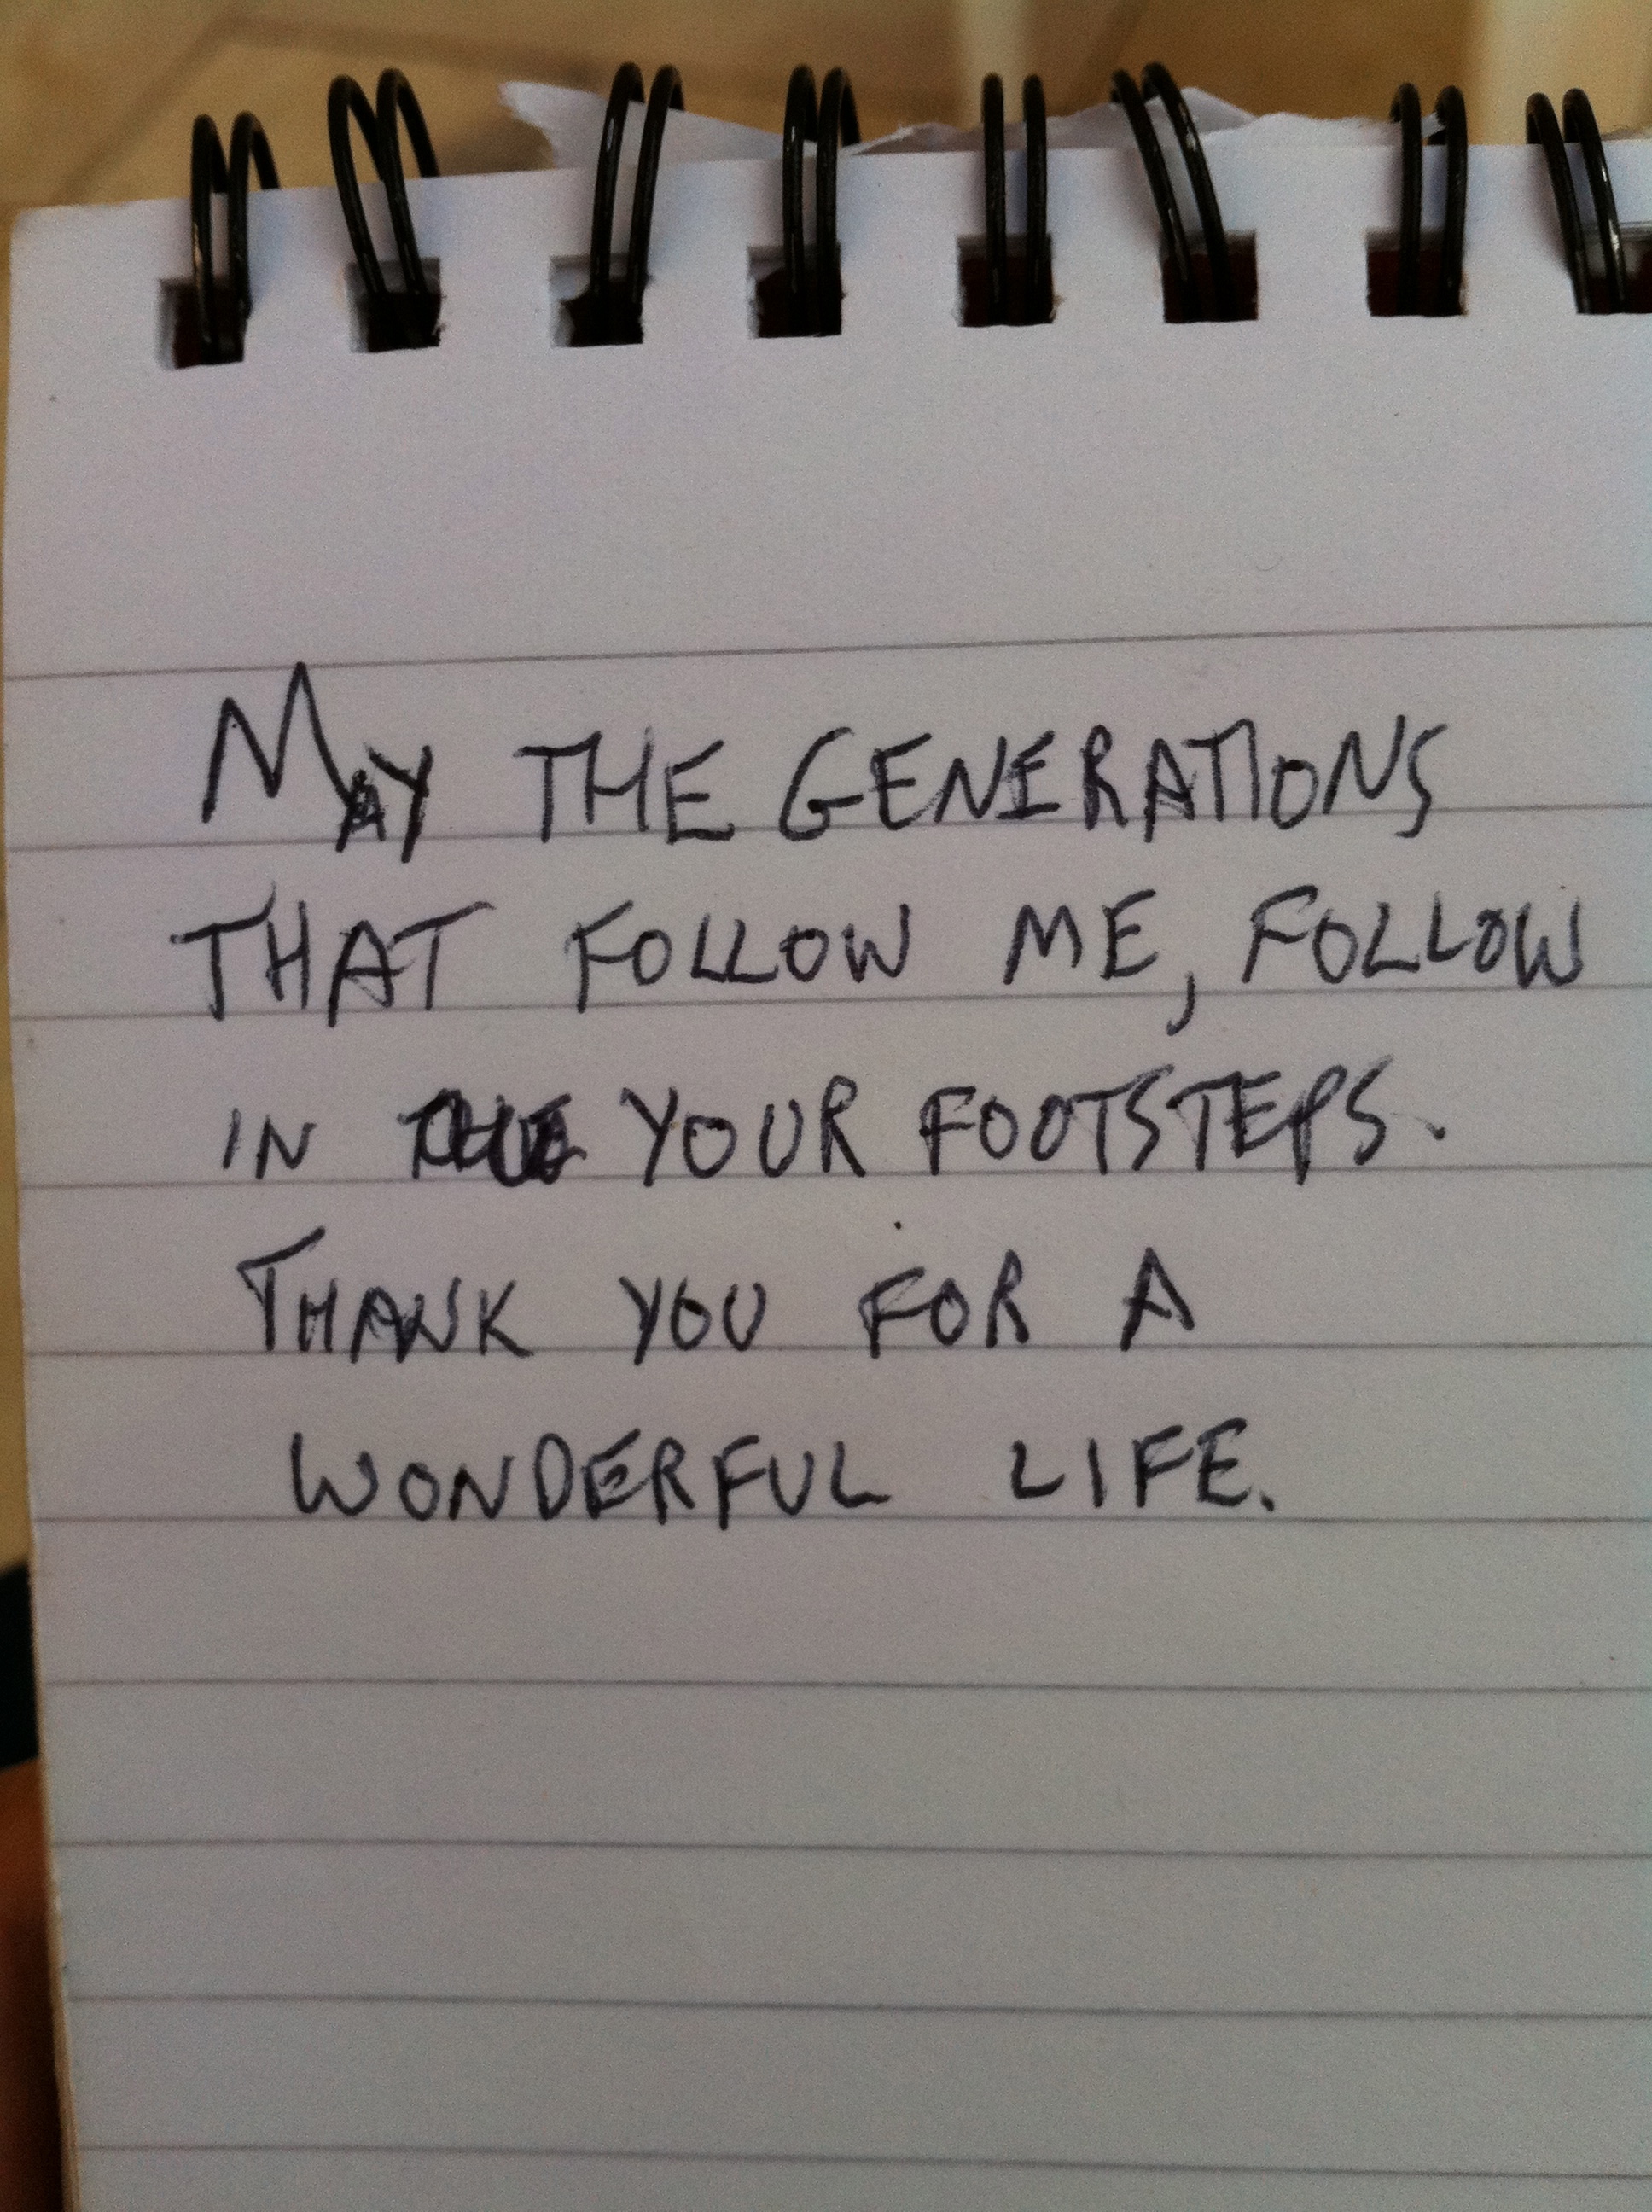 MAY THE GENERATIONS
THAT FOLLOW ME, FOLLOW
IN YOUR FOOTSTEPS.
THANK YOU FOR A
WONDERFUL LIFE.